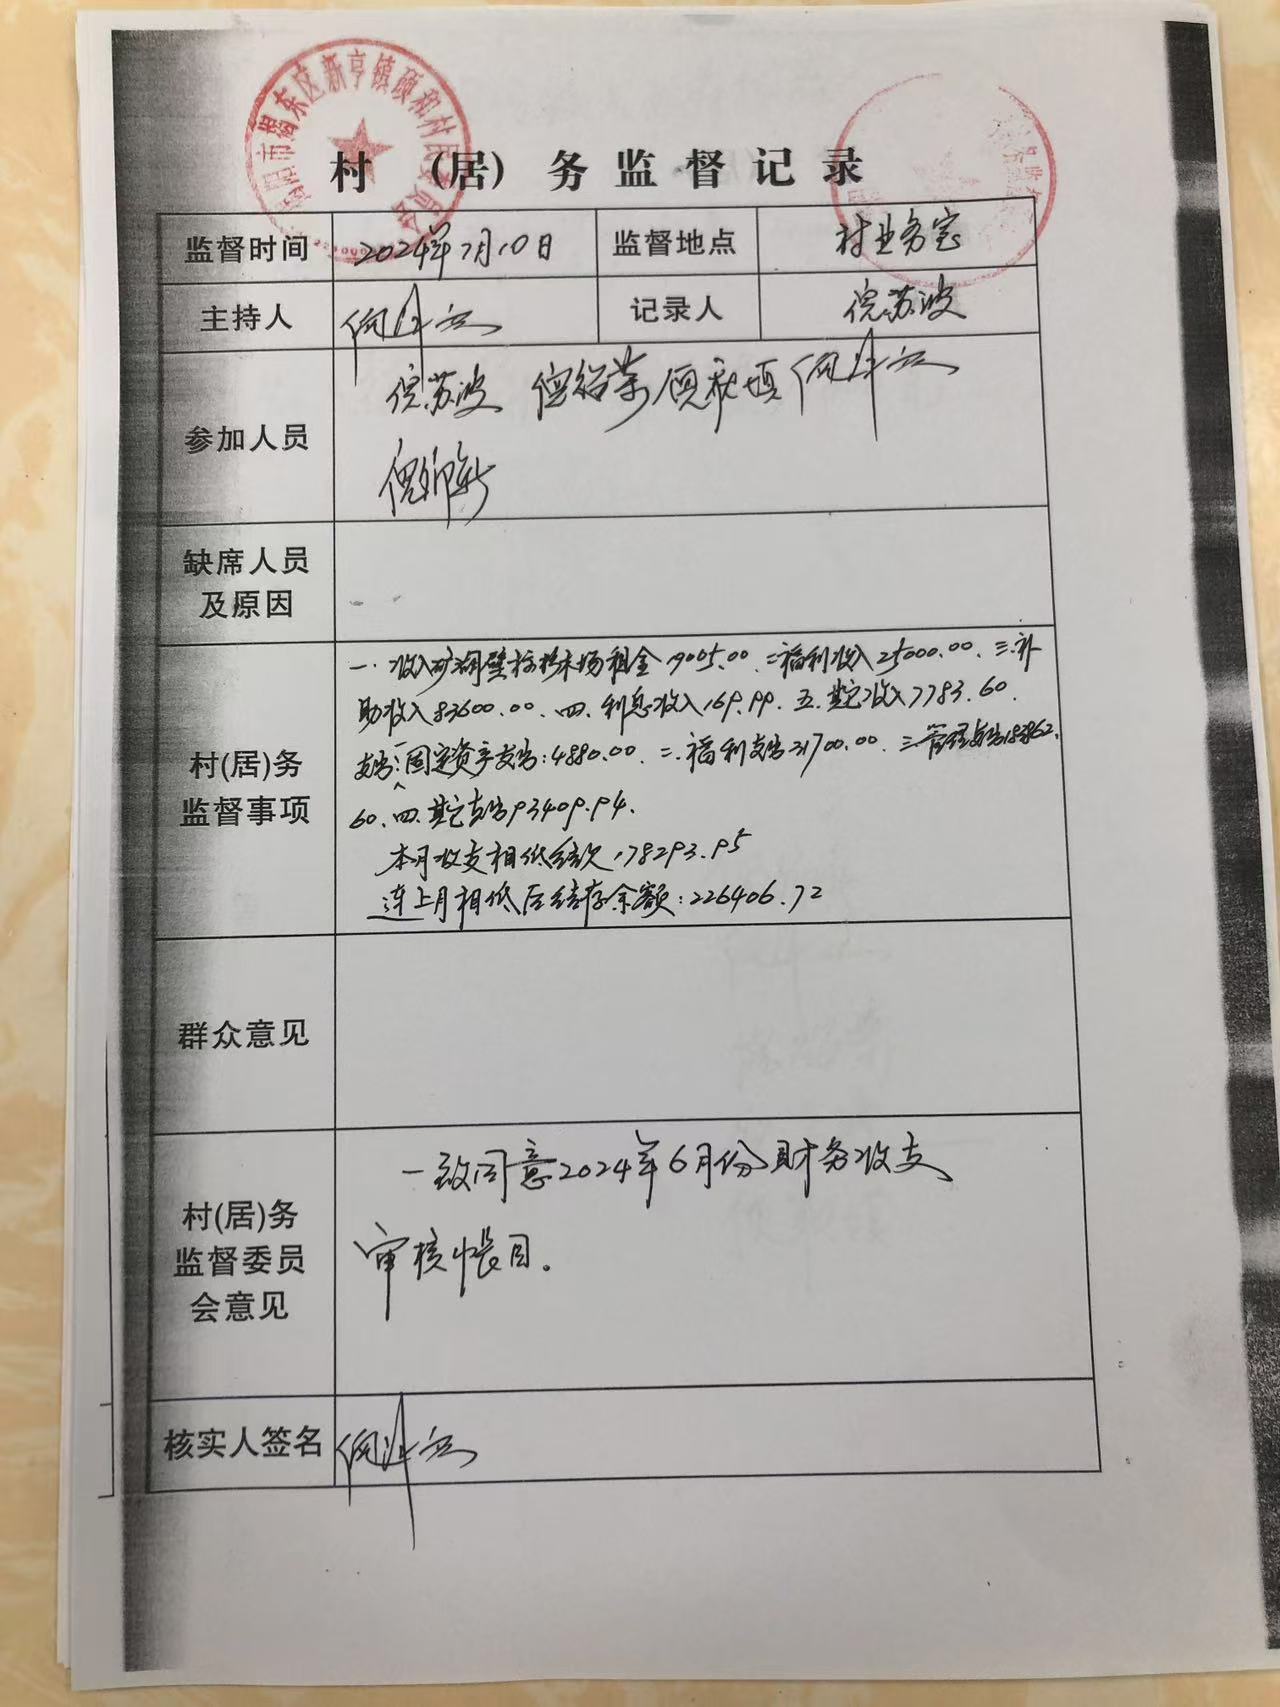 揭阳市揭东区新亨镇硕和村民委员会
村 (居) 务监督记录
监督时间 2024年7月10日 监督地点 村业务室
主持人 记录人 倪苏波
参加人员 倪苏波
缺席人员
及原因
村(居)务
监督事项
一.收入 场租金 9005.00 二福利收入25000.00.三.补
助收入83600.00.四.利息收入169.99.五.其它收入7783.60.
支出:一固定资产支出:4880.00.二.福利支出31700.00.三管理支出
60.四.其它支出93409.94.
本月收支相低结欠178293.95
连上月相低后结存余额:226406.72
群众意见
村(居)务
监督委员
会意见
一致同意2024年6月份财务收支
审核帐目.
核实人签名